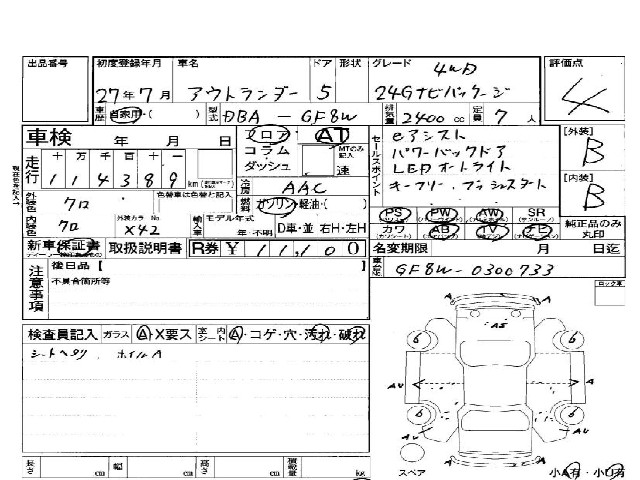 出品番号 初度登録年月 車名 ドア 形状 グレード 評価点
4WD
27年7月 アウトランダー 5 24Gナビパッケージ 4
車歴 自家用・( ) 型式 DBA - GF8W 排気量 2400 cc 定員 7 人
車検 年 月 日 フロア AT セールスポイント eアシスト [外装]
コラム MTのみ記入 パワーバックドア B
走行 十 万 千 百 十 一 ダッシュ 速 LEDオートライト
1 1 4 3 8 9 km 冷房 AAC キーフリー プッシュスタート [内装]
外装色 クロ 色替車は色替と記入 燃料 ガソリン・軽油・( ) B
PS PW AW SR
内装色 クロ 外装カラーNo X42 輸入車 モデル年式 年・不明 D車・並 右H・左H カワ AB TV ナビ 純正品のみ丸印
新車保証書 取扱説明書 R券 ¥ 11,100 名変期限 月 日迄
注意事項 後日品【 車台No. GF8W-0300733
不具合箇所等
検査員記入 ガラス A・X要ス 室内シート A・コゲ・穴・汚れ・破れ
シートヘタリ ホイルA
AS
6 6
AU A A
6 6
AU AU A
長さ cm 幅 cm 高さ cm 積載量 kg スペア 小A有・小U有